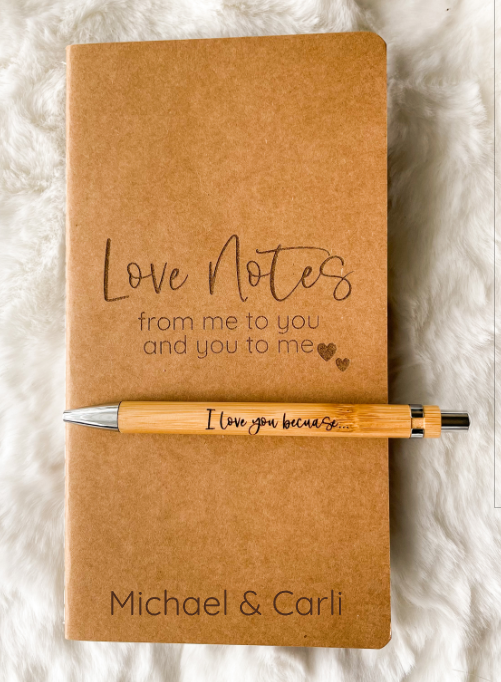 Love Notes
from me to you
and you to me
I love you becuase...
Michael & Carli